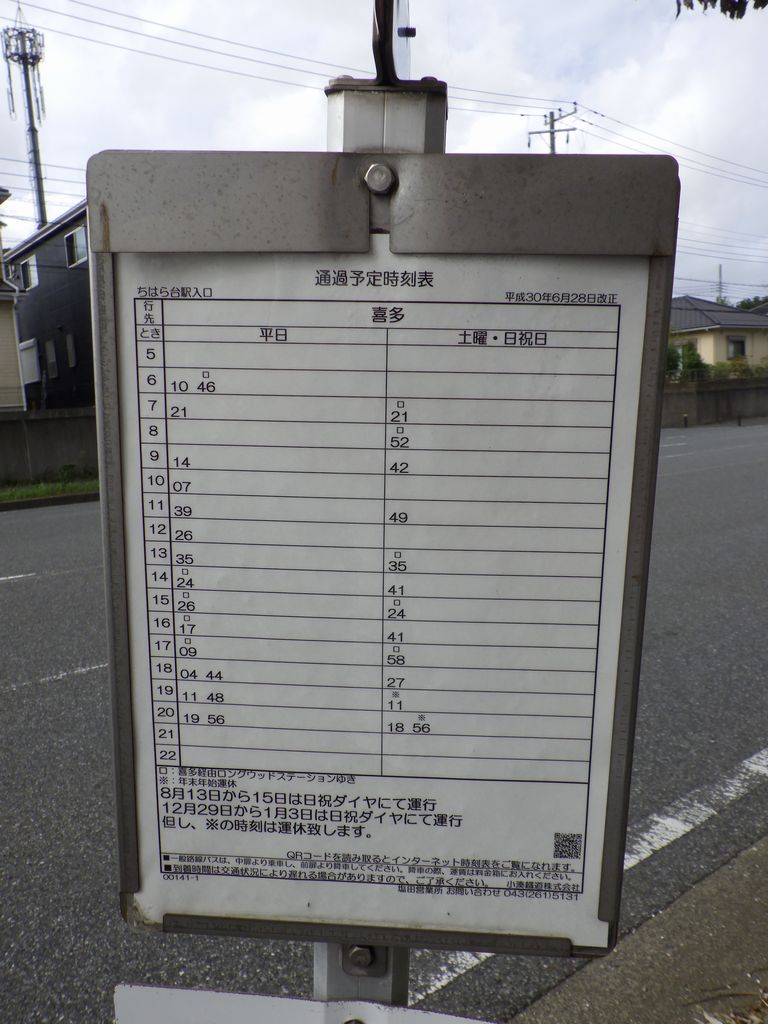 通過予定時刻表
ちはら台駅入口 平成30年6月28日改正
行先 喜多
とき 平日 土曜・日祝日
5
6 10 ロ46
7 21 ロ21
8 ロ52
9 14 42
10 07
11 39 49
12 26
13 35 ロ35
14 ロ24 41
15 ロ26 ロ24
16 ロ17 41
17 ロ09 ロ58
18 04 44 27
19 11 48 ※11
20 19 56 18 ※56
21
22
ロ：喜多経由ロングウッドステーションゆき
※：年末年始運休
8月13日から15日は日祝ダイヤにて運行
12月29日から1月3日は日祝ダイヤにて運行
但し、※の時刻は運休致します。
QRコードを読み取るとインターネット時刻表をご覧になれます。
■一般路線バスは、中扉より乗車し、前扉より降車してください。降車の際、運賃は料金箱にお入れください。
■到着時間は交通状況により遅れる場合がありますので、ご了承ください。 小湊鐵道株式会社
00141-1 塩田営業所 お問い合わせ 043(261)5131